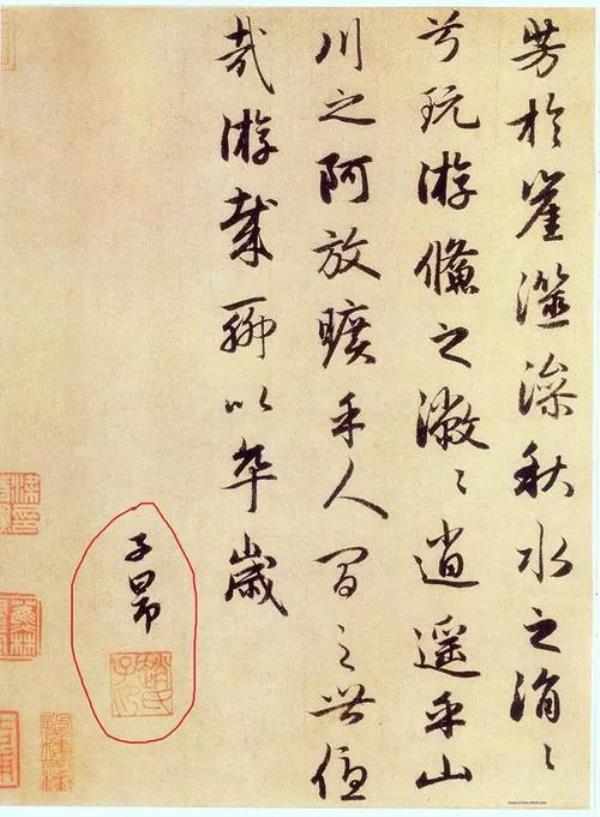 芳於崖澨澡秋水之涓〻
兮玩游鯈之潎〻逍遥乎山
川之阿放曠乎人間之世優
哉游哉聊以卒歲
子昂
趙氏子昂